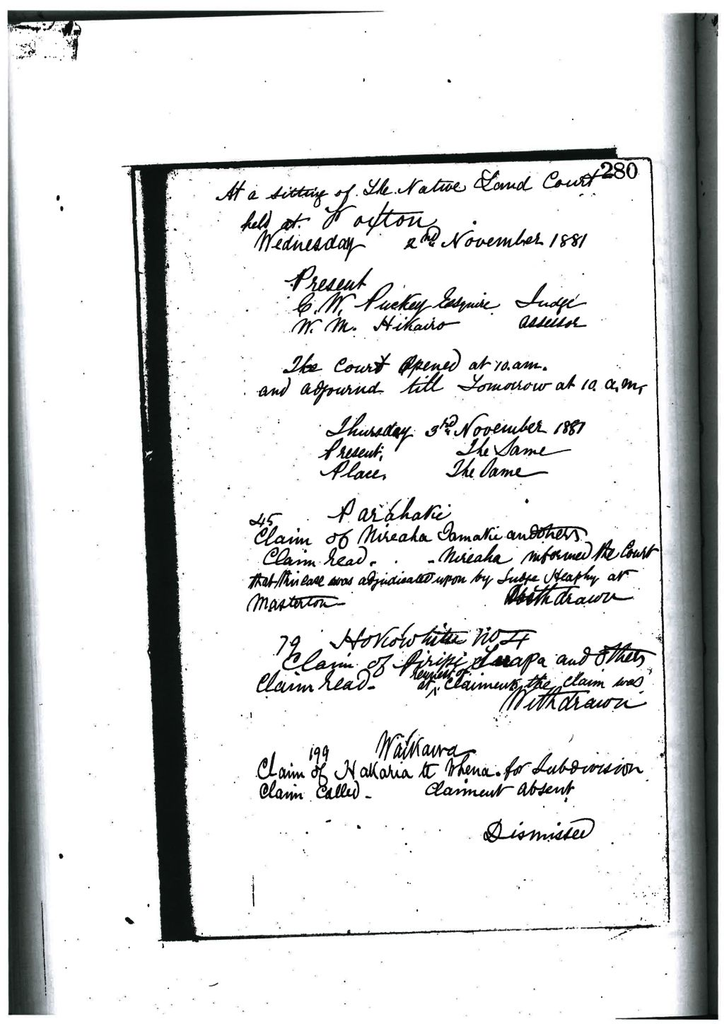 280
At a sitting of The Native Land Court
held at Foxton
Wednesday 2nd November 1881
Present
E. W. Puckey Esquire Judge
W. M. Hikairo assessor
The Court opened at 10 a.m.
and adjourned till Tomorrow at 10 a.m.
Thursday 3rd November 1881
Present, The Same
Place, The Same
45 Parahaki
Claim of Nireaha Tamaki and others
Claim read. . . Nireaha informed the Court
that this case was adjudicated upon by Judge Heaphy at
Masterton Withdrawn
79 Hokowhitu No 4
Claim of Piripi Te Rapa and others
Claim read - at request of Claiment the claim was
Withdrawn
199 Waikawa
Claim of Hakaria te Whena. for Subdivision
Claim Called - Claiment absent
Dismissed